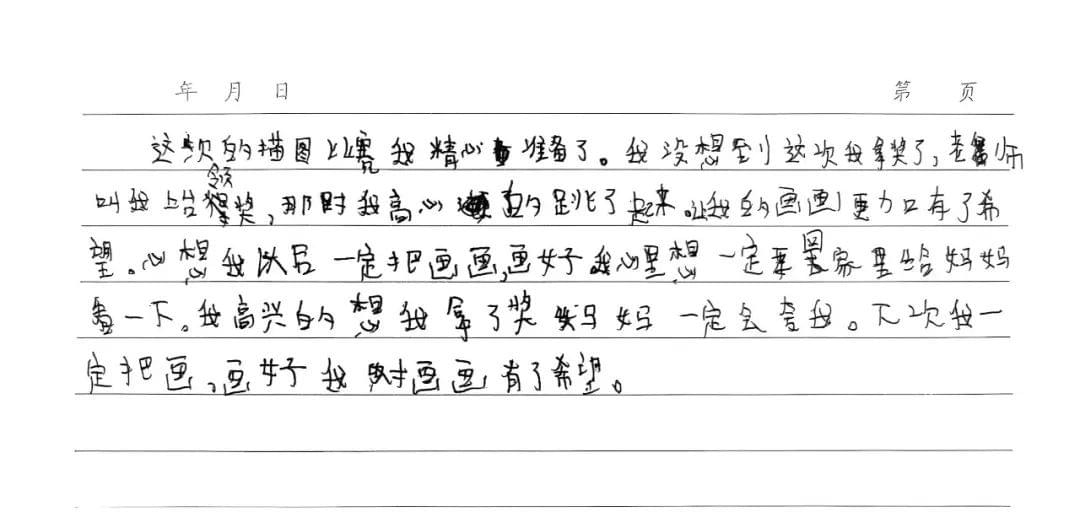 年 月 日 第 页
这次的描图比赛我精心准备了。我没想到这次我拿奖了,老师
叫我上台领奖,那时我高心的跳了起来。让我的画画更力口有了希
望。心想我以后一定把画画,画好我心里想一定要拿回家里给妈妈
看一下。我高兴的想我拿了奖妈妈一定会夸我。下次我一
定把画,画好我对画画有了希望。